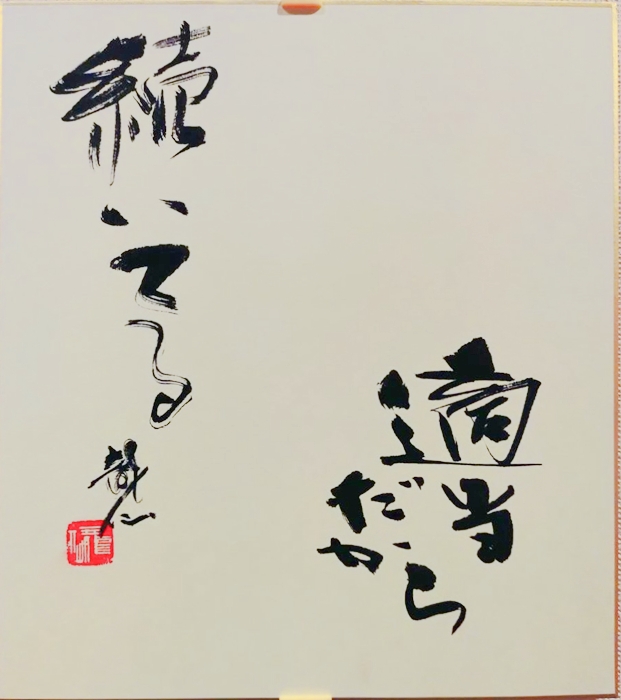 適当
だから
続いてる